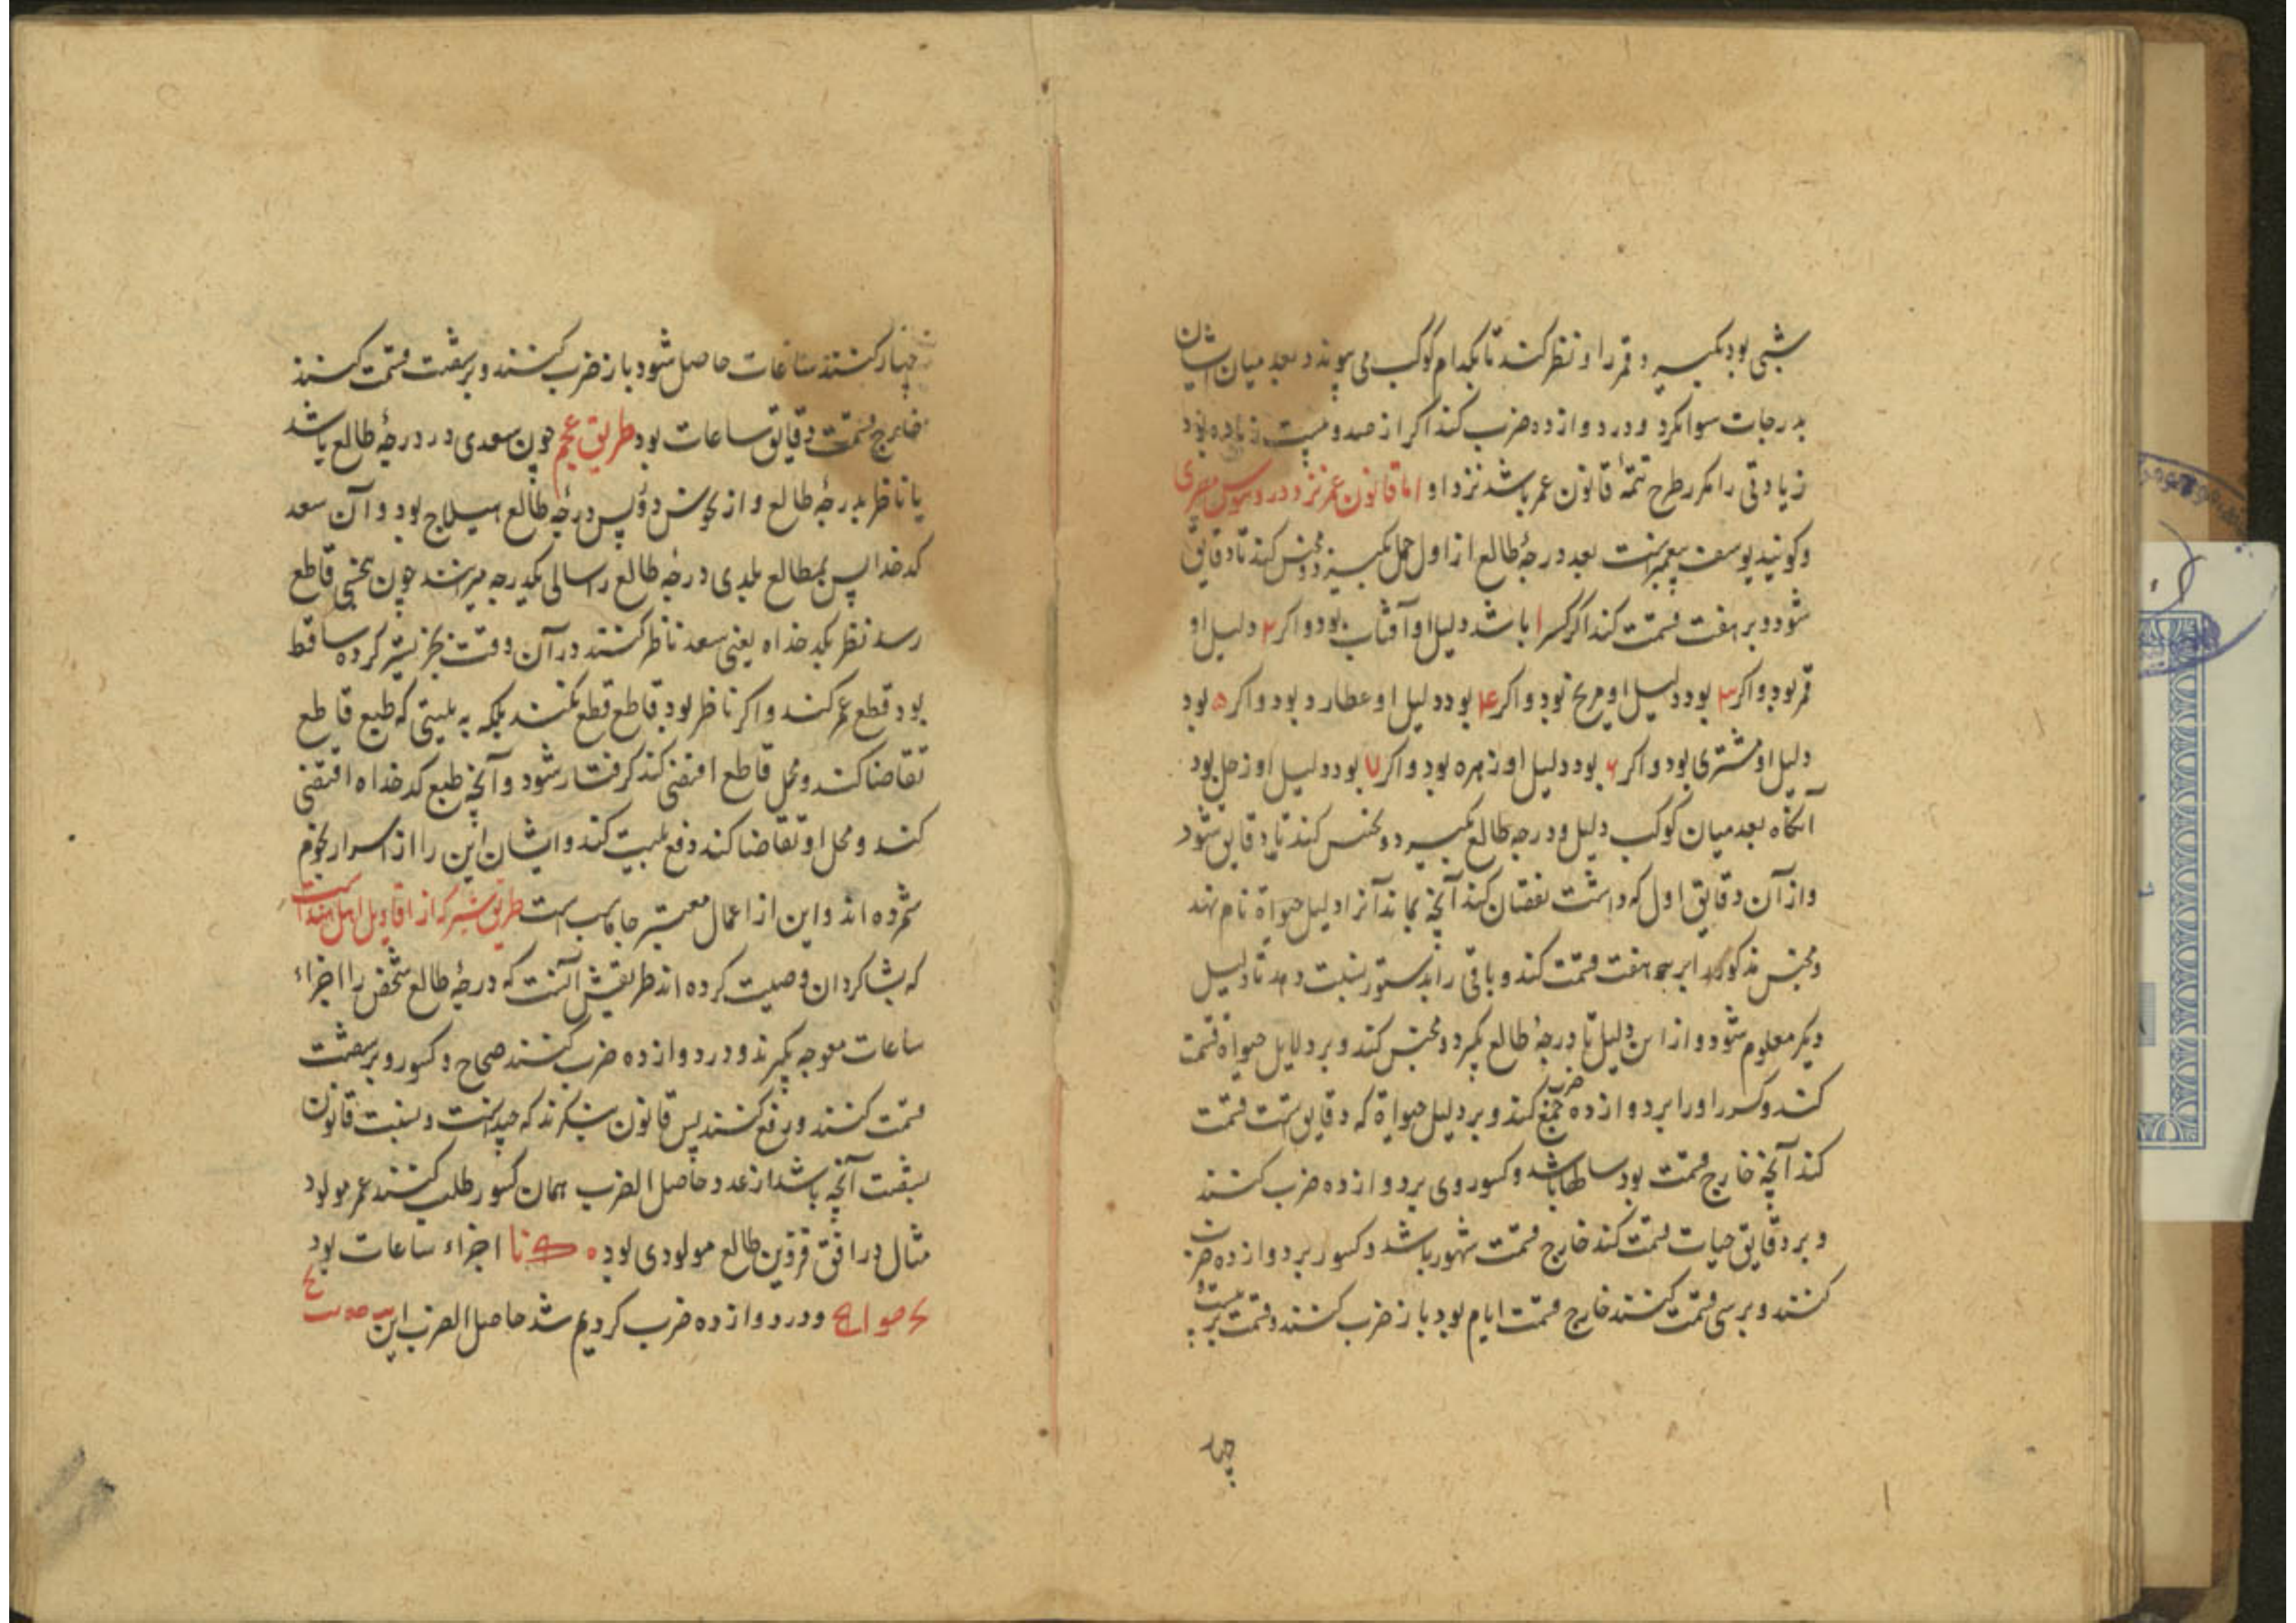 شبی بود بگیرد و قمر را و نظر کند تا بکدام کوکب می پیوندد بعد میان ایشان
بدرجات سوا بگیرد و در دوازده ضرب کند اگر از صد و بیست زیاده بود
زیادتی را مکرر طرح تتمهٔ قانون عمر باشد نزد او اما قانون عمر نزد دروثیوس مصری
و کویند یوسف پیغمبرست بعد درجهٔ طالع از اول حمل بگیرد و مجنس کند تا دقایق
شود و بر هفت قسمت کند اگر کسر ۱ باشد دلیل او آفتاب بود و اکر ۲ دلیل او
قمر بود و اکر ۳ بود دلیل او مریخ بود و اکر ۴ بود دلیل او عطارد بود و اکر ۵ بود
دلیل او مشتری بود و اکر ۶ بود دلیل او زهره بود و اکر ۷ بود دلیل او زحل بود
آنکاه بعد میان کوکب دلیل و درجه طالع بگیرد و مجنس کند تا دقایق شود
و از آن دقایق اول که داشت نقصان کند آنچه بماند آنرا دلیل حیوة نام نهند
و مجنس مذکور را بر هفت قسمت کند و باقی را بدستور نسبت دهد تا دلیل
دیکر معلوم شود و از این دلیل تا درجهٔ طالع بگیرد و مجنس کند و بر دلایل حیوة قسمت
کند و کسر او را بر دوازده ضرب جمع کند و بر دلیل حیوة که دقایق است قسمت
کند آنچه خارج قسمت بود سالها باشد و کسور وی بر دوازده ضرب کنند
و بر دقایق حیات قسمت کند خارج قسمت شهور باشد و کسور بر دوازده ضرب
کنند و بر سی قسمت کنند خارج قسمت ایام بود باز ضرب کنند و قسمت بر بیست و
چهار
چهار کنند ساعات حاصل شود باز ضرب کنند و بر شصت قسمت کنند
خارج قسمت دقایق ساعات بود طریق عجم چون سعدی در درجهٔ طالع باشد
یا ناظر بدرجهٔ طالع و از نحوس دور پس درجهٔ طالع هیلاج بود و آن سعد
کدخدا پس بمطالع بلدی درجه طالع را سالی یکدرجه میرانند چون بنحسی قاطع
رسد نظر بکدخداه یعنی سعد ناظر کنند در آن وقت بنکرند
بود قطع عمر کند و اکر ناظر بود قاطع قطع نکند بلکه به بلیتی که طبع قاطع
تقاضا کند و محل قاطع اقتضی کند کرفتار شود و آنچه طبع کدخداه اقتضی
کند و محل او تقاضا کند دفع بلیت کند و ایشان این را از اسرار نجوم
شمرده اند و این از اعمال معتبر جاماسب است طریق دیگر که از اقاویل اهل هند است
که بشاکردان وصیت کرده اند طریقش آنست که درجهٔ طالع شخص را اجزاء
ساعات معوجه بگیرند و در دوازده ضرب کنند صحاح و کسور و بر شصت
قسمت کنند و رفع کنند پس قانون بنکرند که چیست و بنسبت قانون
بشصت آنچه باشد از عدد حاصل الضرب همان کسور طلب کنند عمر مولود
مثال در افق قزوین طالع مولودی بود ه ک نا اجزاء ساعات بود
و در دوازده ضرب کردیم شد حاصل الضرب این